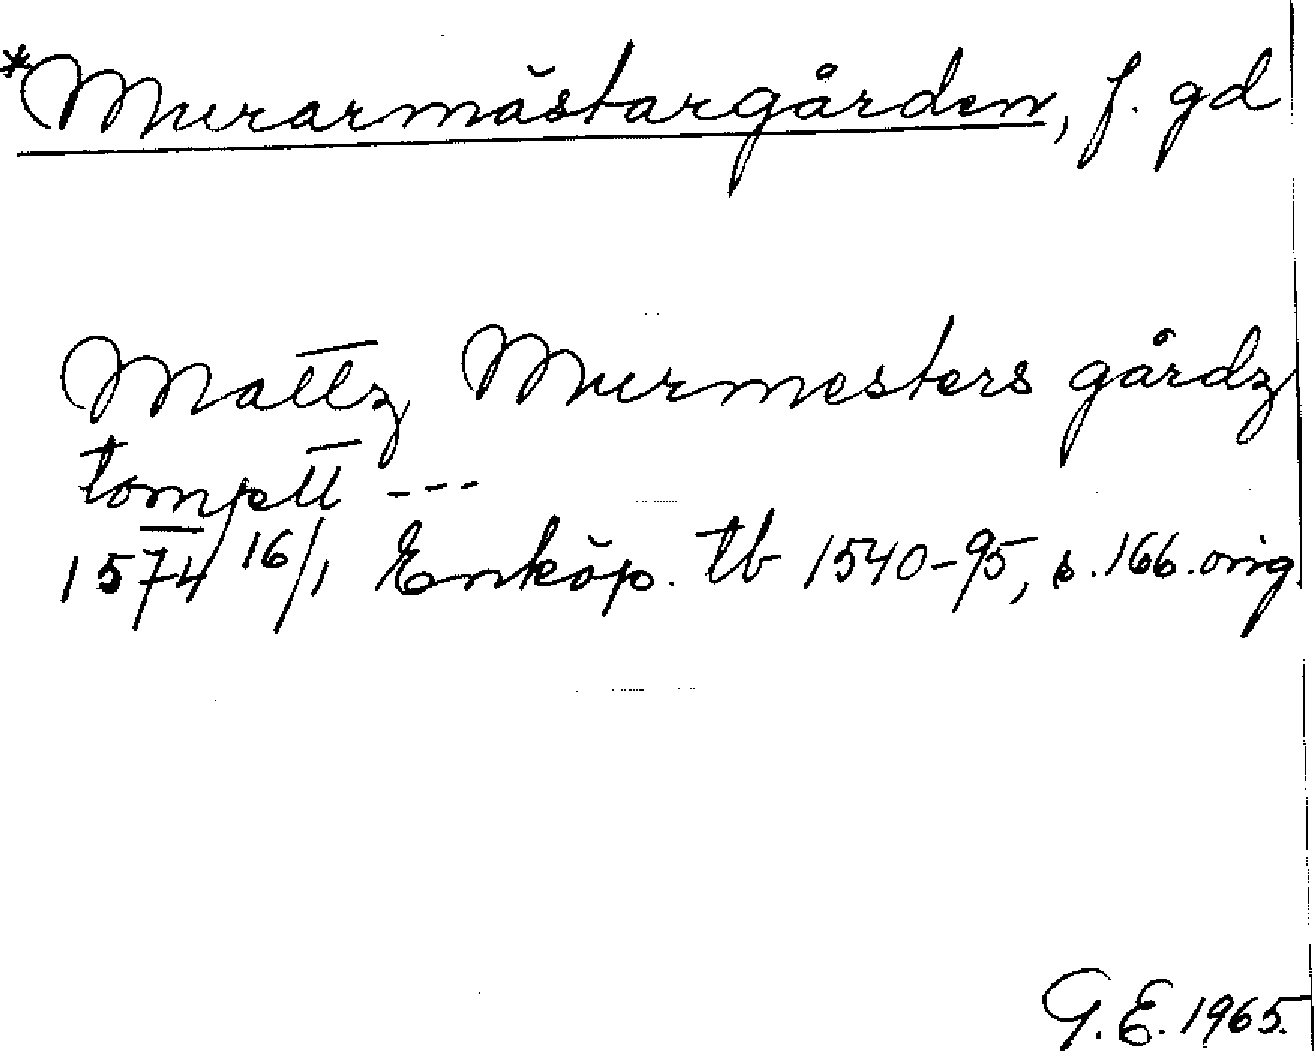 *Murarmästargården, f. gd
Mattz Murmesters gårdz
tomptt ---
1574 16/1 Enköp. tb 1540-95, s. 166. orig
G. E. 1965.